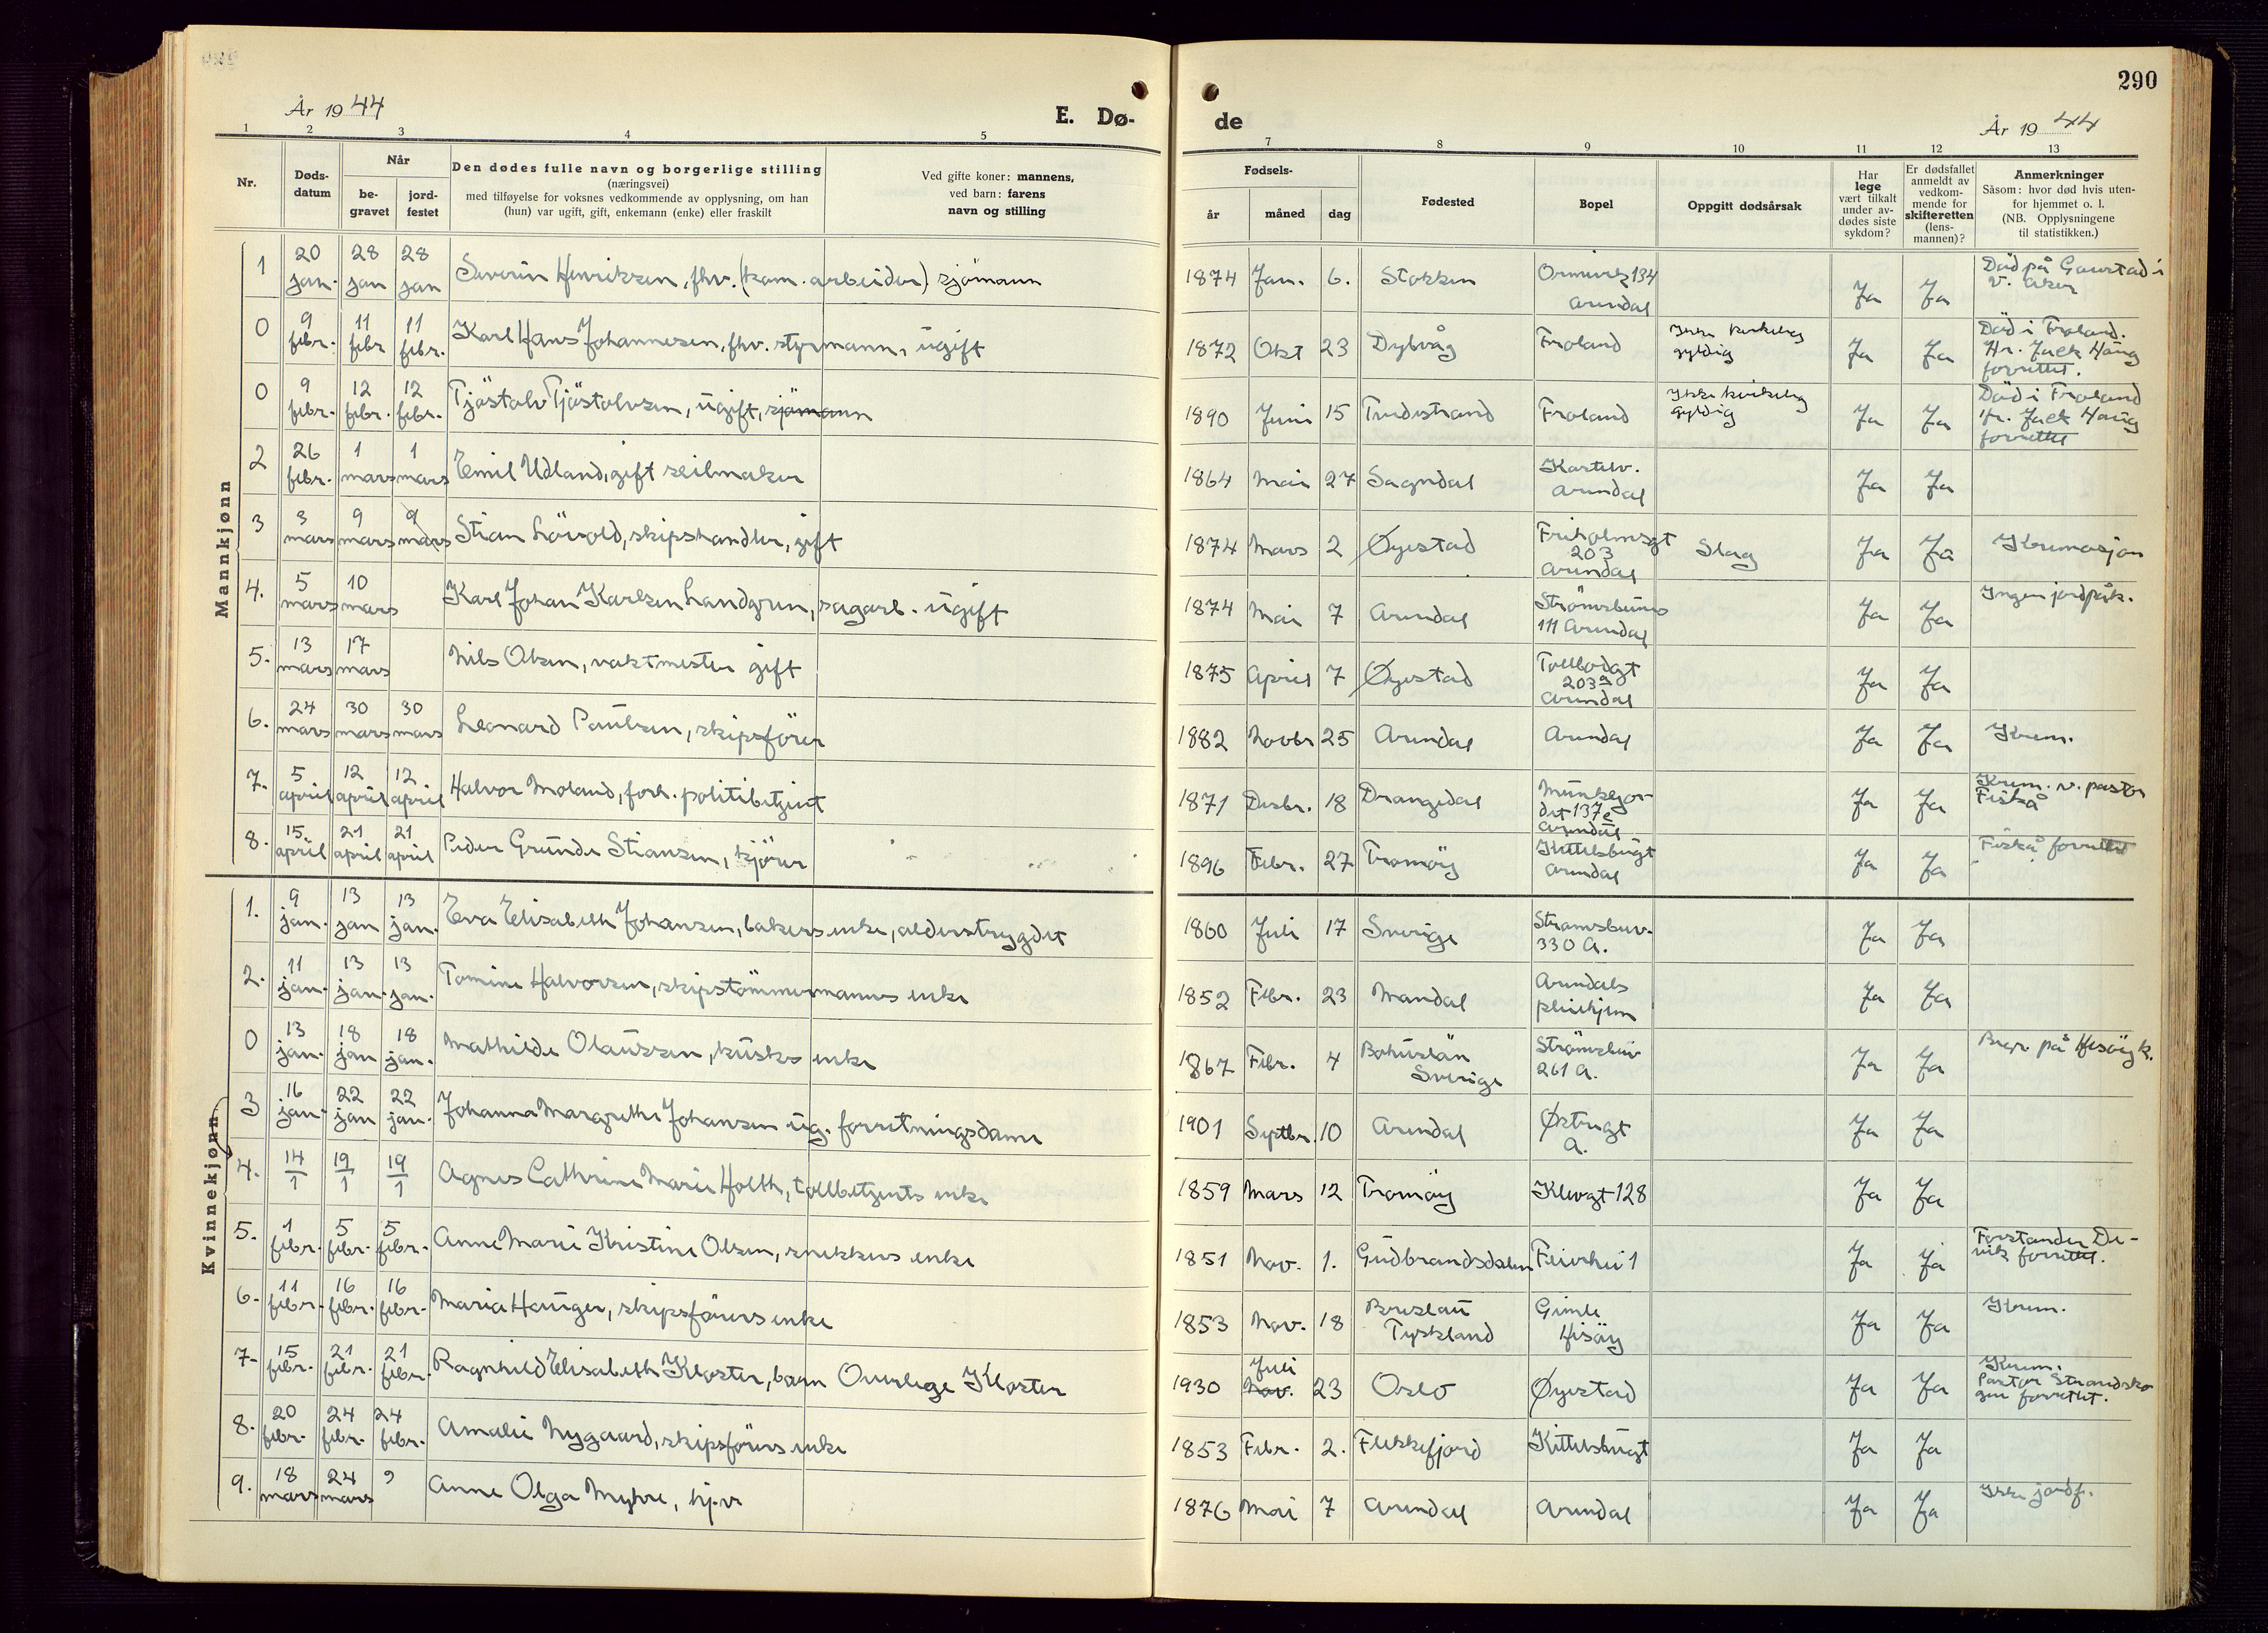 290
År 1944
E. Dø-
de
År 1944
1 2 3 4 5 7 8 9 10 11 12 13
Nr.
Døds-
datum
Når
be-
gravet
jord-
festet
Den dødes fulle navn og borgerlige stilling
(næringsvei)
med tilføyelse for voksnes vedkommende av opplysning, om han
(hun) var ugift, gift, enkemann (enke) eller fraskilt
Ved gifte koner: mannens,
ved barn: farens
navn og stilling
Fødsels-
år måned dag
Fødested
Bopel
Oppgitt dødsårsak
Har
lege
vært tilkalt
under av-
dødes siste
sykdom?
Er dødsfallet
anmeldt av
vedkom-
mende for
skifteretten
(lens-
mannen)?
Anmerkninger
Såsom: hvor død hvis uten-
for hjemmet o. l.
(NB. Opplysningene
til statistikken.)
Mannkjønn
1 20 jan. 28 jan 28 jan Severin Henriksen, fhv. (kom. arbeider) sjömann 1874 Jan. 6. Stokken 134 Arendal Ja Ja Död på Gaustad i V. Aker
0 9 febr. 11 febr 11 febr. Karl Hans Johannesen, fhv. styrmann, ugift 1872 Okt 23 Dybvåg Froland Ikke kirkelig gyldig Ja Ja Död i Froland. Hr. Jack Haug forrettet.
0 9 febr. 12 febr. 12 febr. Tjöstolv Tjöstolvsen, ugift, sjömann 1890 Juni 15 Tvedestrand Froland Ikke kirkelig gyldig Ja Ja Död i Froland Hr. Jack Haug forrettet
2 26 febr. 1 mars 1 mars Emil Udland, gift seilmaker 1864 Mai 27 Sogndal Kastelv. Arendal Ja Ja
3 3 mars 9 mars 9 mars Stian Lövold, skipshandler, gift 1874 Mars 2 Øyestad Friholmsgt 203 Arendal Slag Ja Ja Kremasjon
4. 5 mars 10 mars Karl Johan Karlsen Landgren, sagarb. ugift 1874 Mai 7 Arendal Strömsbuv 111 Arendal Ja Ja Ingen jordpåk.
5. 13 mars 17 mars Nils Olsen, vaktmester gift 1875 April 7 Øyestad Tollbodgt 203a Arendal Ja Ja
6. 24 mars 30 mars 30 mars Leonard Paulsen, skipsförer 1882 Novbr 25 Arendal Arendal Ja Ja Krem.
7. 5 april 12 april 12 april Halvor Moland, forh. politibetjent 1871 Desbr. 18 Drangedal Munkegjor- det 137e Arendal Ja Ja Krem. v. pastor Fiskå
8. 15 april 21 april 21 april Peder Grunde Stiansen, kjörer 1896 Febr. 27 Tromöy Kittelsbugt Arendal Ja Ja Fiskå forrettet
Kvinnekjønn
1. 9 jan. 13 jan 13 jan. Eva Elisabeth Johansen, bakers enke, alderstrygdet 1860 Juli 17 Sverige Strømsbuv. 330 A. Ja Ja
2. 11 jan. 13 jan. 13 jan. Tomine Halvorsen, skipstömmermanns enke 1852 Febr. 23 Mandal Arendals pleiehjem Ja Ja
0 13 jan. 18 jan 18 jan. Mathilde Olaussen, kusks enke 1867 Febr. 4 Bohuslän Sverige Strömsbuv 261 A. Ja Ja Begr. på Hisöy k.
3 16 jan. 22 jan 22 jan. Johanna Margrethe Johansen ug. forretningsdame 1901 Septbr. 10 Arendal Østregt A. Ja Ja
4. 14/1 19/1 19/1 Agnes Cathrine Marie Holth, tollbetjents enke 1859 Mars 12 Tromöy Klevgt 128 Ja Ja
5. 1 febr. 5 febr. 5 febr. Anne Marie Kristine Olsen, snekkers enke 1851 Nov. 1. Gudbrandsdalen Feierhei 1 Ja Ja Forstander De- vik forrettet.
6. 11 febr. 16 febr. 16 febr. Maria Hauger, skipsförers enke 1853 Nov. 18 Breslau Tyskland Gimle Hisöy Ja Ja Krem.
7. 15 febr. 21 febr. 21 febr. Ragnhild Elisabeth Kloster, barn Overlege Kloster 1930 Juli Nov. 23 Oslo Øyestad Ja Ja Krem. Pastor Strandsko gen forrettet.
8. 20 febr. 24 febr. 24 febr. Amalie Nygaard, skipsförers enke 1853 Febr. 2. Flekkefjord Kittelsbugt Ja Ja
9. 18 mars 24 mars Anne Olga Myhre, hj.v. 1876 Mai 7 Arendal Arendal Ja Ja Ikke jordf.